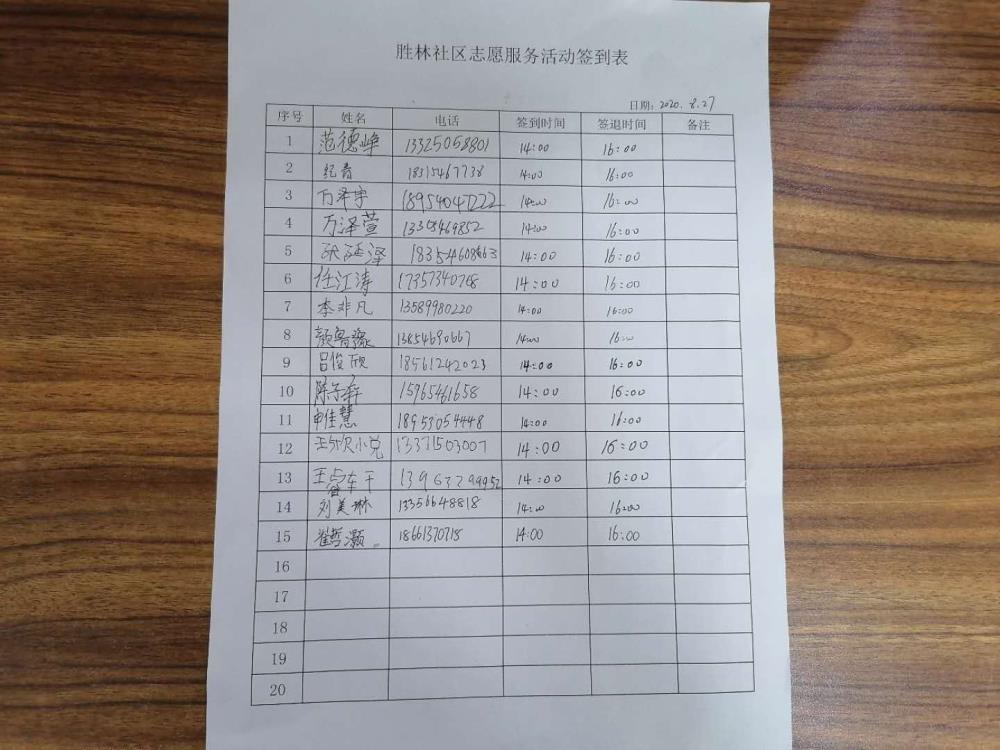 胜林社区志愿服务活动签到表
日期: 2020.8.27
序号 姓名 电话 签到时间 签退时间 备注
1 范德峰 13325058801 14:00 16:00
2 纪青 18315467738 14:00 16:00
3 万泽宇 18954047222 14:00 16:00
4 万泽萱 13305469852 14:00 16:00
5 张延泽 14:00 16:00
6 任江涛 14:00 16:00
7 李非凡 13589980220 14:00 16:00
8 颜鲁豫 13854690667 14:00 16:00
9 吕俊欣 18561242023 14:00 16:00
10 15965461658 14:00 16:00
11 申佳慧 18953054448 14:00 16:00
12 13371503007 14:00 16:00
13 14:00 16:00
14 刘美琳 13356648818 14:00 16:00
15 崔哲灏 18661370718 14:00 16:00
16
17
18
19
20